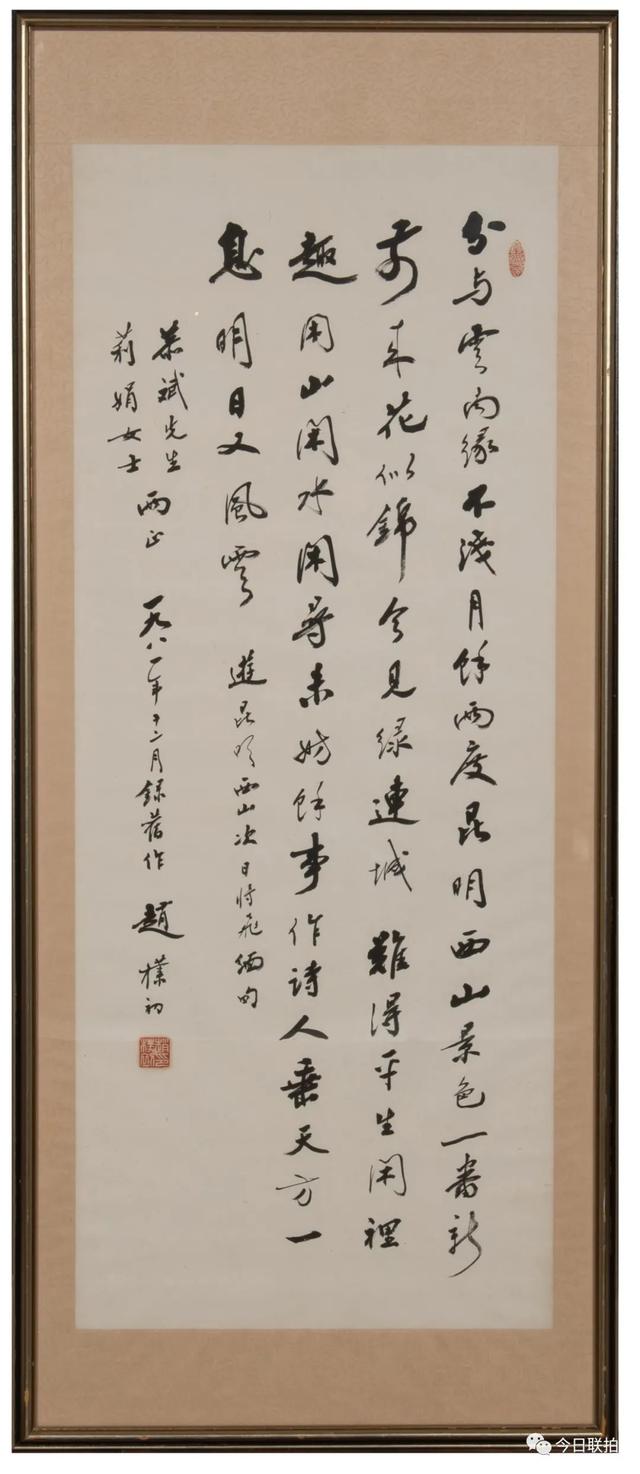 分与雲南緣不淺月餘兩度昆明西山景色一番新
前来花似錦今見緑連城難得平生閑裡
趣閑山閑水閑尋未妨餘事作詩人乘天方一
息明日又風雲 遊昆明西山次日将飛緬甸
恭斌先生
莉娟女士
兩正 一九八一年十二月録舊作 趙樸初
今日联拍